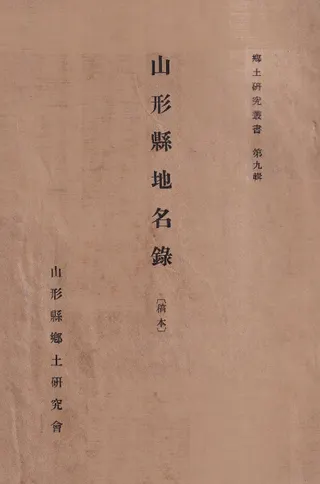 鄕土硏究叢書　第九輯
山形縣地名錄
〔稿本〕
山形縣鄕土硏究會